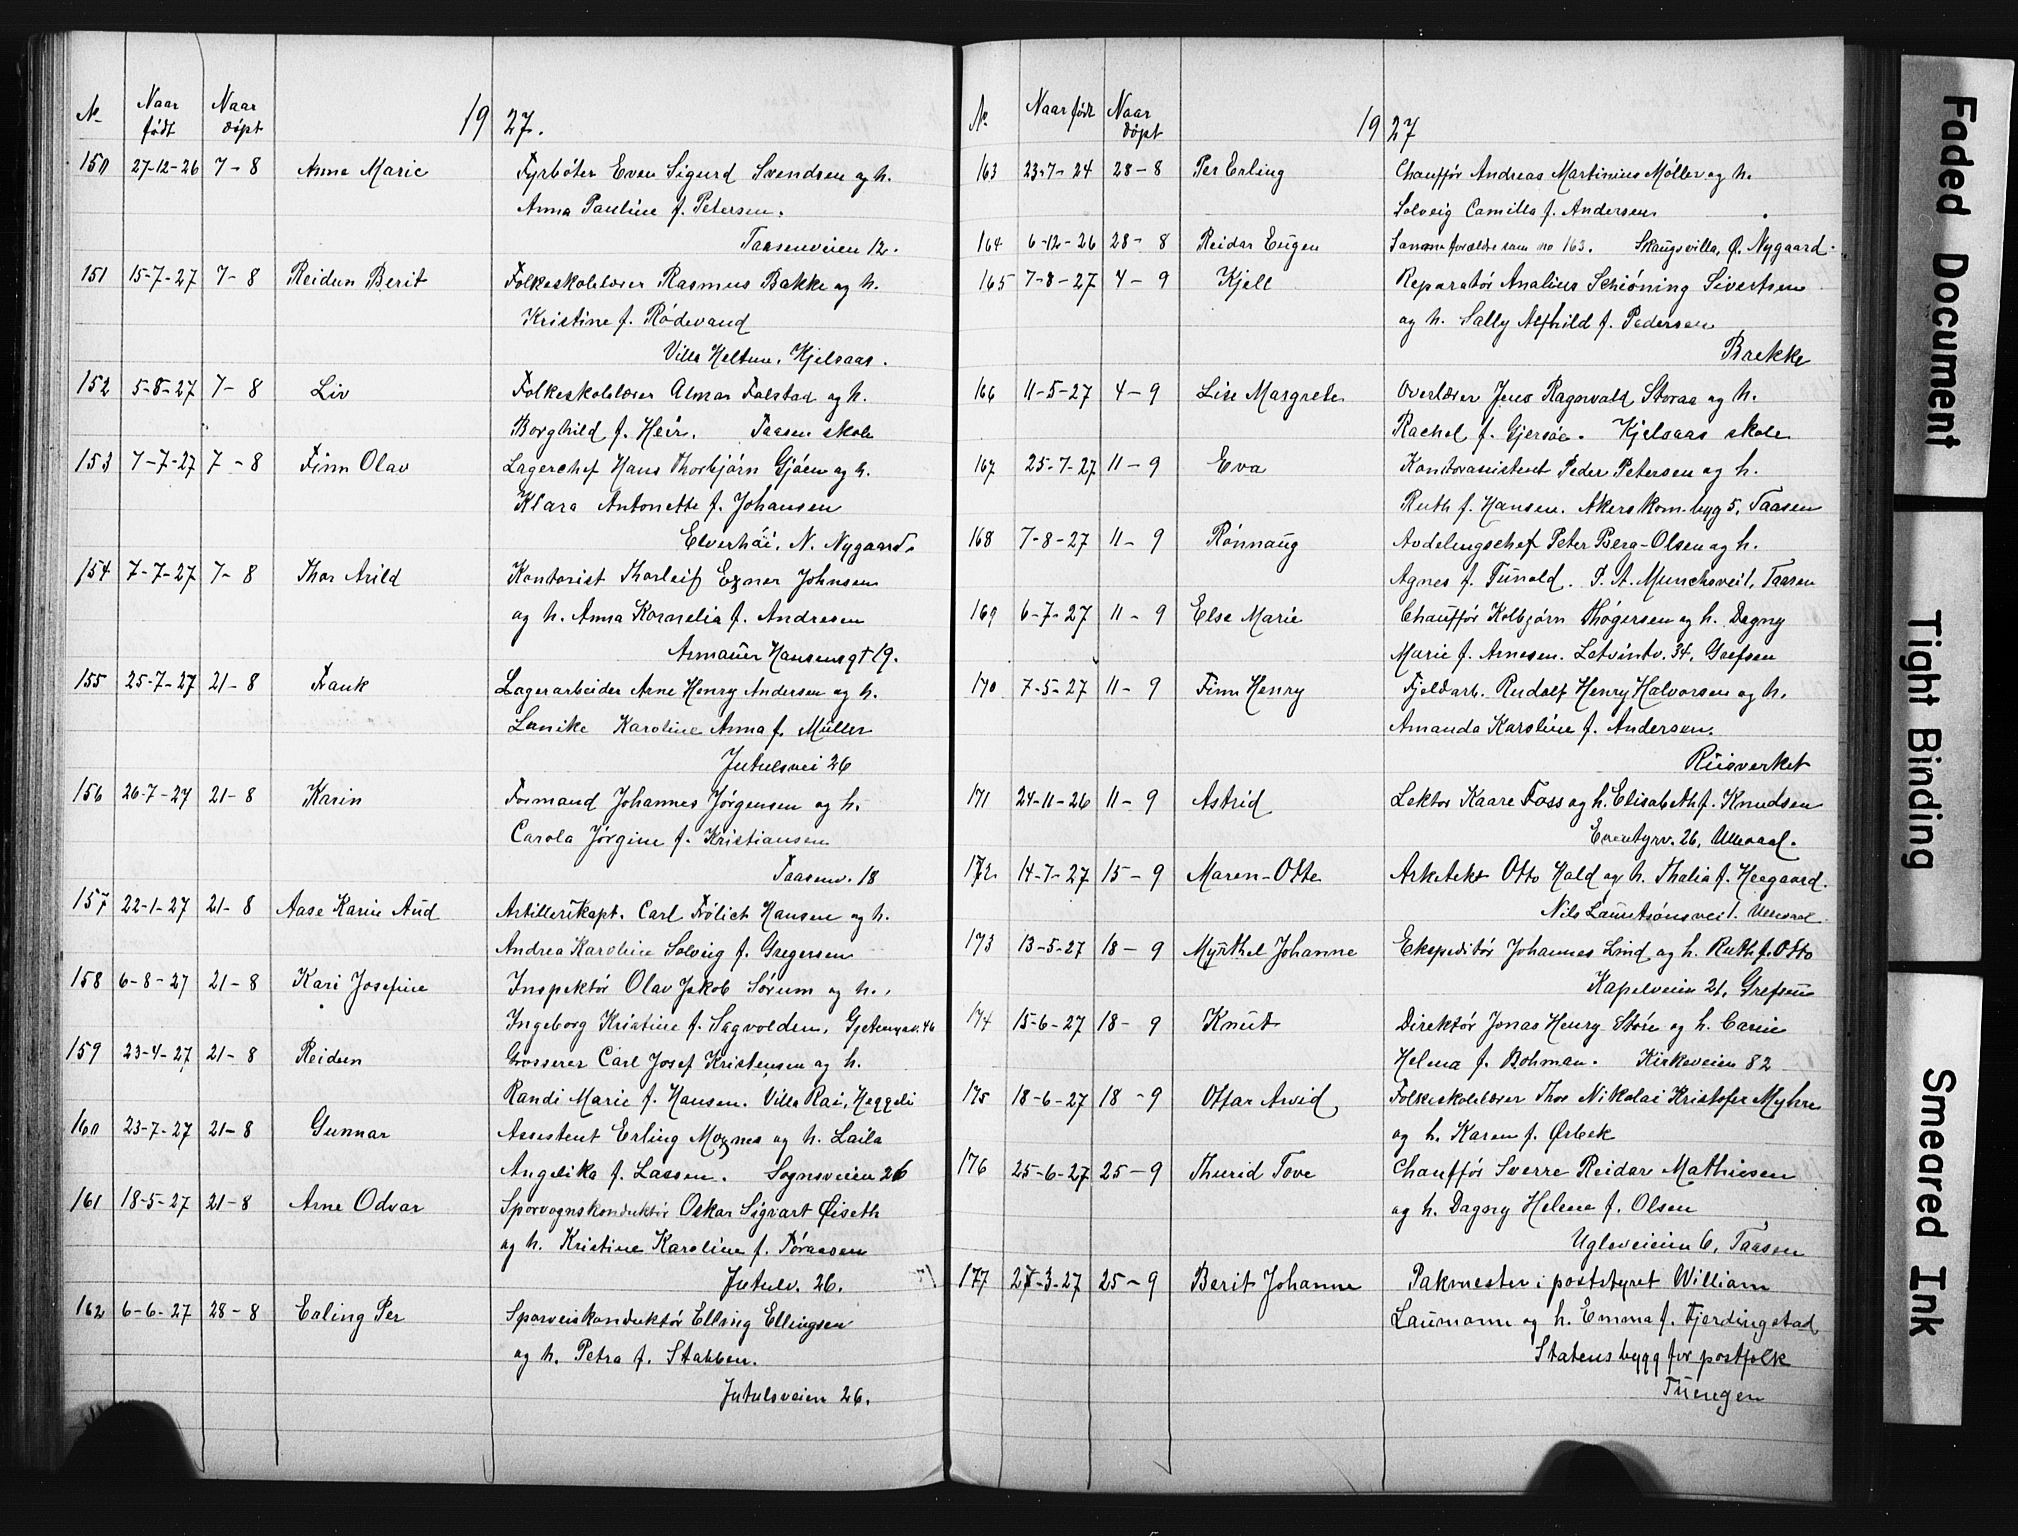 No Naar født Naar døpt 1927.
150 27-12-26 7-8 Anne Marie Fyrbøter Even Sigurd Svendsen og h.
Anna Pauline f. Petersen.
Taasenveien 12.
151 15-7-27 7-8 Reidun Berit Folkeskolelærer Rasmus Bakke og h.
Kristine f. Rødevand
Villa Heltun, Kjelsaas.
152 5-8-27 7-8 Liv Folkeskolelærer Almar Falstad og h.
Borghild f. Heir. Taasen skole
153 7-7-27 7-8 Finn Olav Lagerchef Hans Thorbjørn Gjøen og h.
Klara Antonette f. Johansen
Elverhøi, N. Nygaard.
154 7-7-27 7-8 Thor Arild Kontorist Thorleif Exner Johnsen
og h. Anna Kornelia f. Andresen
Armauer Hansensgt 19.
155 25-7-27 21-8 Frank Lagerarbeider Arne Henry Andersen og h.
Karoline Anna f. Müller
Jutulsvei 26
156 26-7-27 21-8 Karin Formand Johannes Jørgensen og h.
Carola Jørgine f. Kristiansen
Taasenv. 18
157 22-1-27 21-8 Aase Karin Aud Artillerikapt. Carl Frölich Hansen og h.
Andrea Karoline Solveig f. Gregersen
158 6-8-27 21-8 Kari Josefine Inspektør Olav Jakob Sørum og h.
Ingeborg Kristine f. Sagvolden, 46
159 23-4-27 21-8 Reidun Grosserer Carl Josef Kristensen og h.
Randi Marie f. Hansen. Villa Rai, Heggeli
160 23-7-27 21-8 Gunnar Assistent Erling Moxnes og h. Laila
Angelika f. Lassen. Sognsveien 26
161 18-5-27 21-8 Arne Odvar Sporvognskonduktør Oskar Sigvart Øiseth
og h. Kristine Karoline f. Føraasen
Jutulv. 26.
162 6-6-27 28-8 Erling Per Sporveiskonduktør Elling Ellingsen
og h. Petra f. Stabben.
Jutulsveien 26.
No Naar født Naar døpt 1927
163 23-7-24 28-8 Per Erling Chauffør Andreas Martinius Møller og h.
Solveig Camilla f. Andersen
164 6-12-26 28-8 Reidar Eugen Samme forældre som no 163. Skaugsvilla, Ø. Nygaard.
165 7-8-27 4-9 Kjell Reparatør Analius Schiöning Sivertsen
og h. Sally Alfhild f. Pedersen
Brekke
166 11-5-27 4-9 Lise Margrete Overlærer Jens Ragnvald Storaa og h.
Rachel f. Gjersøe. Kjelsaas skole
167 25-7-27 11-9 Eva Kontorassistent Peder Petersen og h.
Ruth f. Hansen. Akers kom. byg 5, Taasen
168 7-8-27 11-9 Rønnaug Avdelingschef Peter Berg-Olsen og h.
Agnes f. Tunold. P. A. Munchsvei 1, Taasen
169 6-7-27 11-9 Else Marie Chauffør Kolbjørn Thøgersen og h. Dagny
Marie f. Arnesen. 34, Grefsen
170 7-5-27 11-9 Finn Henry Fjeldarb. Rudolf Henry Halvorsen og h.
Amanda Karoline f. Andersen.
Riisverket
171 24-11-26 11-9 Astrid Lektor Kaare Foss og h. Elisabeth f. Knudsen
Eventyrv. 26, Ullevaal.
172 14-7-27 15-9 Maren-Otte Arkitekt Otto Hald og h. Thalia f. Heegaard.
Nils Lauritsønsvei 1. Ullevaal
173 13-5-27 18-9 Myrthel Johanne Ekspeditør Johannes Lind og h. Ruth f. Otto
Kapelveien 21, Grefsen
174 15-6-27 18-9 Knut Direktør Jonas Henry Støre og h. Carin
Helena f. Bohman. Kirkeveien 82
175 18-6-27 18-9 Ottar Arvid Folkeskolelærer Thor Nikolai Kristofer Myhre
og h. Karen f. Ørbek
176 25-6-27 25-9 Thurid Tove Chauffør Sverre Reidar Mathiesen
og h. Dagny Helene f. Olsen
Ugleveien 6, Taasen
177 27-3-27 25-9 Berit Johanne Pakmester i poststyret William
Laumann og h. Emma f. Fjerdingstad
Statens bygg for postfolk
Tuengen
Faded Document
Tight Binding
Smeared Ink